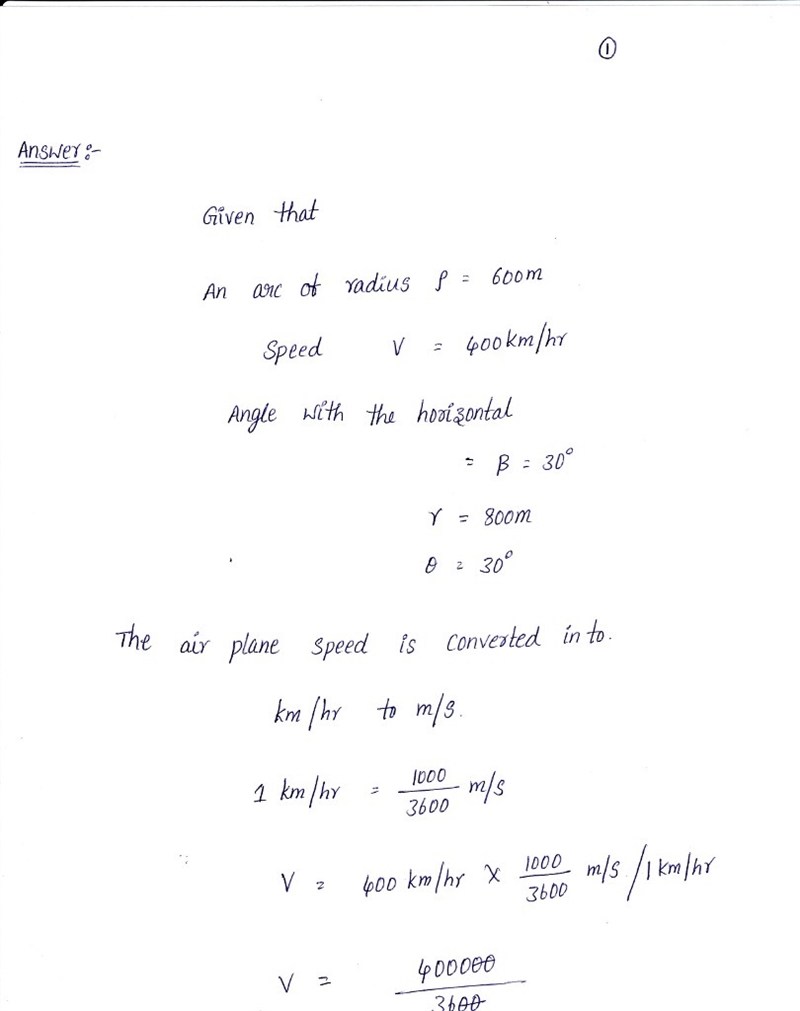 ①
Answer:-
Given that
An arc of radius ρ = 600m
Speed V = 400km/hr
Angle with the horizontal
= β = 30°
r = 800m
θ = 30°
The air plane speed is converted in to.
km/hr to m/s.
1 km/hr = 1000/3600 m/s
V = 400 km/hr × 1000/3600 m/s /1 km/hr
V = 400000/3600